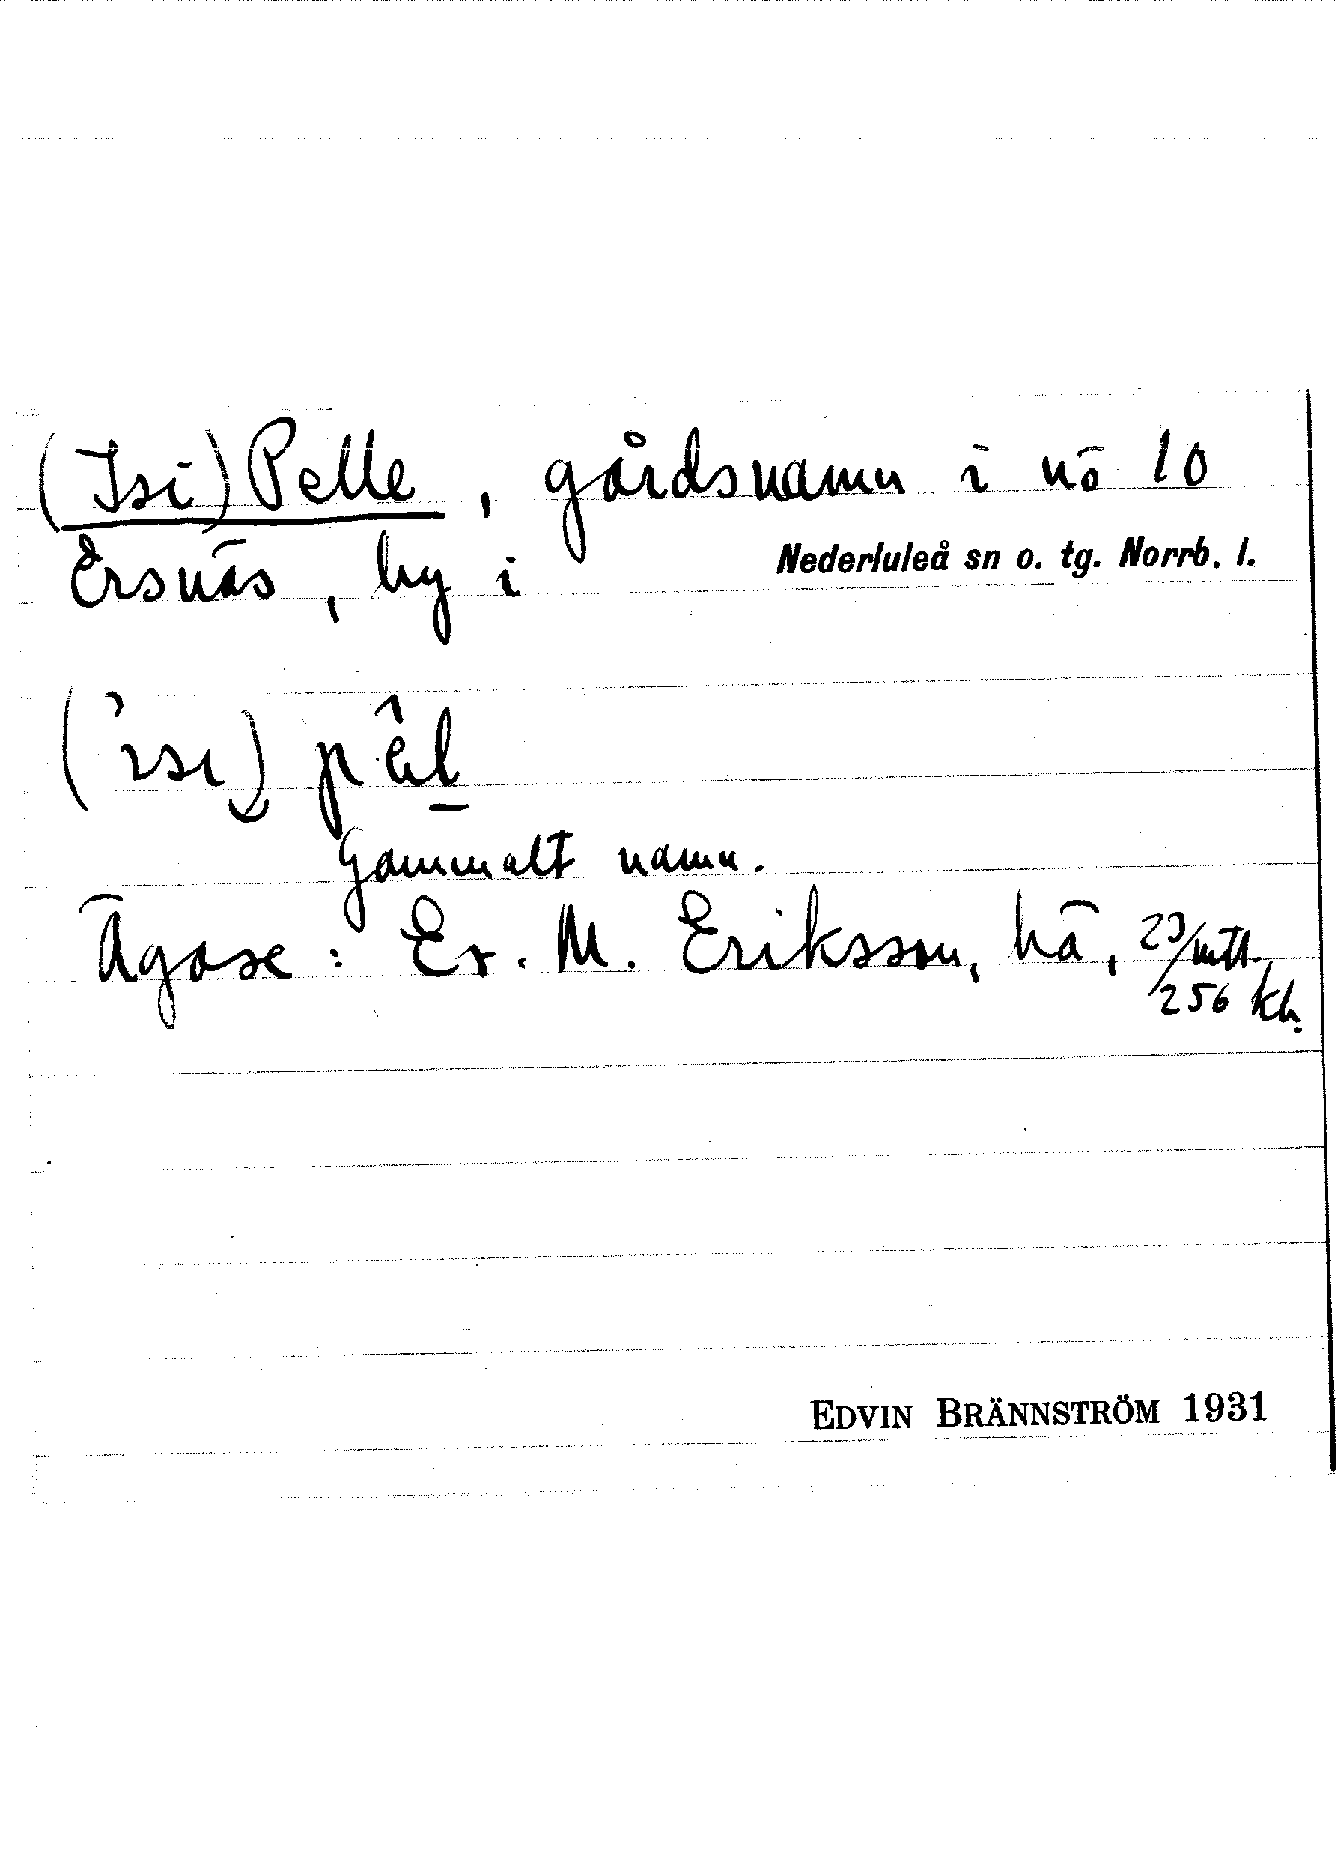 (Isi)Pelle, gårdsnamn i nö 10
Ersnäs, by i Nederluleå sn o. tg. Norrb. l.
(ˋısı) pêl
Gammalt namn.
Ägare: Er. M. Eriksson, hä, 23/256 mtl. Kh.
EDVIN BRÄNNSTRÖM 1931